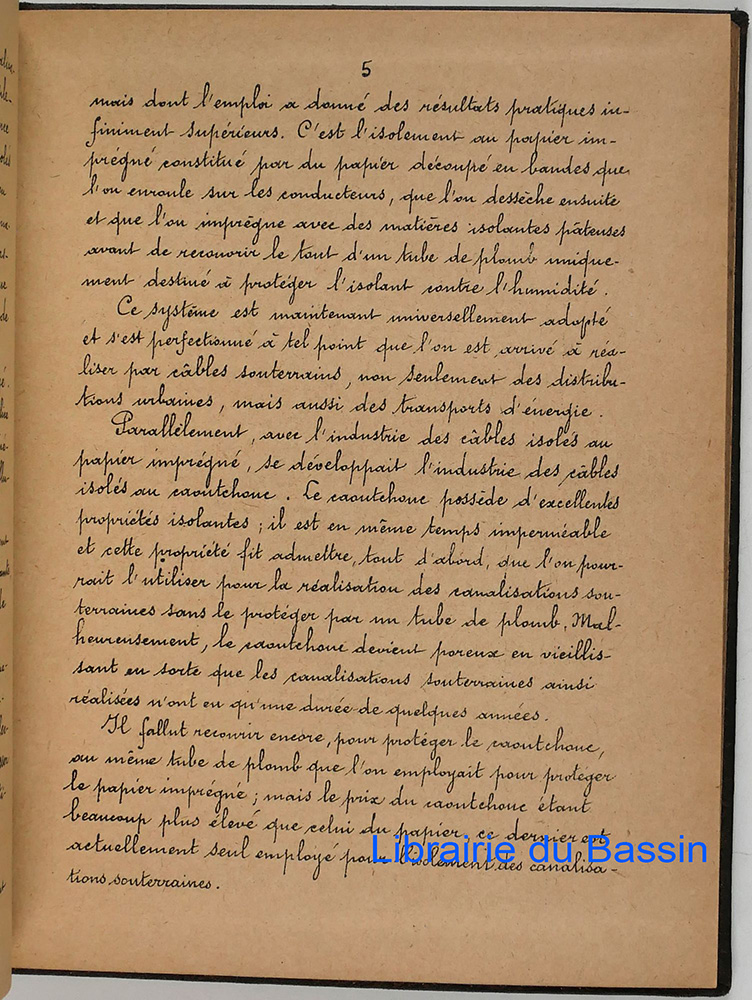 5
mais dont l'emploi a donné des résultats pratiques in-
finiment supérieurs. C'est l'isolement au papier im-
prégné constitué par du papier découpé en bandes que
l'on enroule sur les conducteurs, que l'on dessèche ensuite
et que l'on imprègne avec des matières isolantes pâteuses
avant de recouvrir le tout d'un tube de plomb unique-
ment destiné à protéger l'isolant contre l'humidité.
Ce système est maintenant universellement adopté
et s'est perfectionné à tel point que l'on est arrivé à réa-
liser par câbles souterrains, non seulement des distribu-
tions urbaines, mais aussi des transports d'énergie.
Parallèlement, avec l'industrie des câbles isolés au
papier imprégné, se développait l'industrie des câbles
isolés au caoutchouc. Le caoutchouc possède d'excellentes
propriétés isolantes; il est en même temps imperméable
et cette propriété fit admettre, tout d'abord, que l'on pour-
rait l'utiliser pour la réalisation des canalisations sou-
terraines sans le protéger par un tube de plomb. Mal-
heureusement, le caoutchouc devient poreux en vieillis-
sant en sorte que les canalisations souterraines ainsi
réalisées n'ont eu qu'une durée de quelques années.
Il fallut recourir encore, pour protéger le caoutchouc,
au même tube de plomb que l'on employait pour protéger
le papier imprégné; mais le prix du caoutchouc étant
beaucoup plus élevé que celui du papier, ce dernier est
actuellement seul employé pour l'isolement des canalisa-
tions souterraines.
Librairie du Bassin